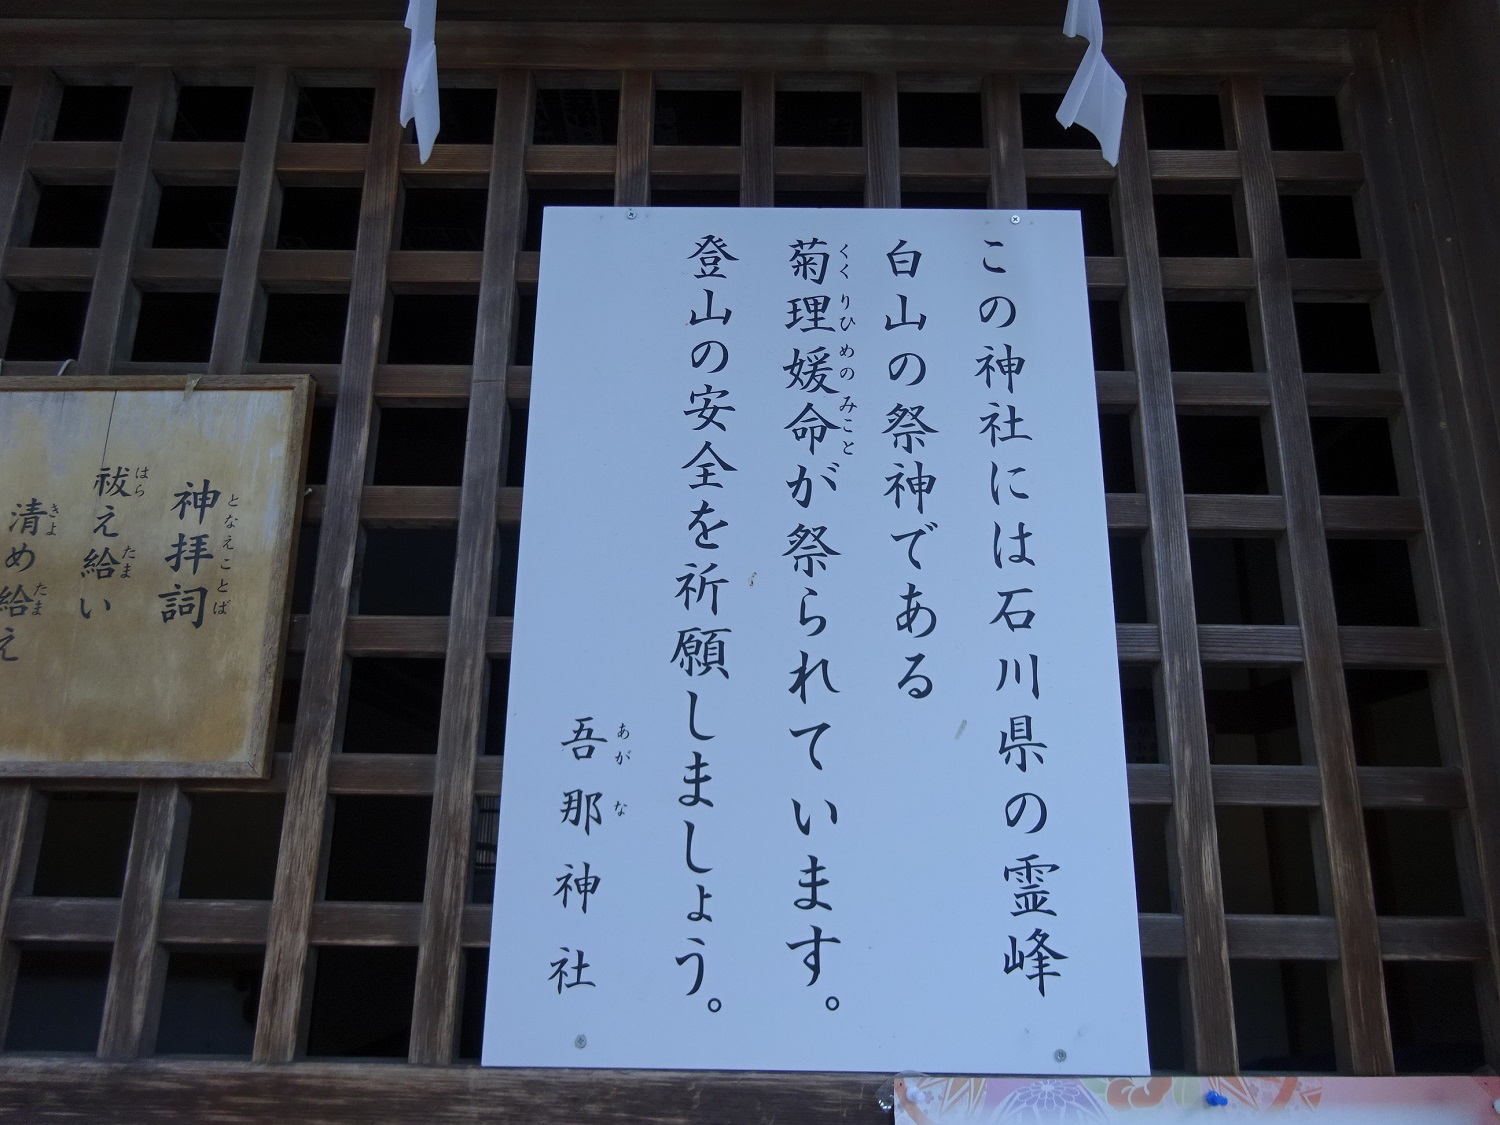 この神社には石川県の霊峰
白山の祭神である
菊理媛命が祭られています。
くくりひめのみこと
登山の安全を祈願しましょう。
吾那神社
あがな
神拝詞
となえことば
祓え給い
はらたま
清め給え
きよたま